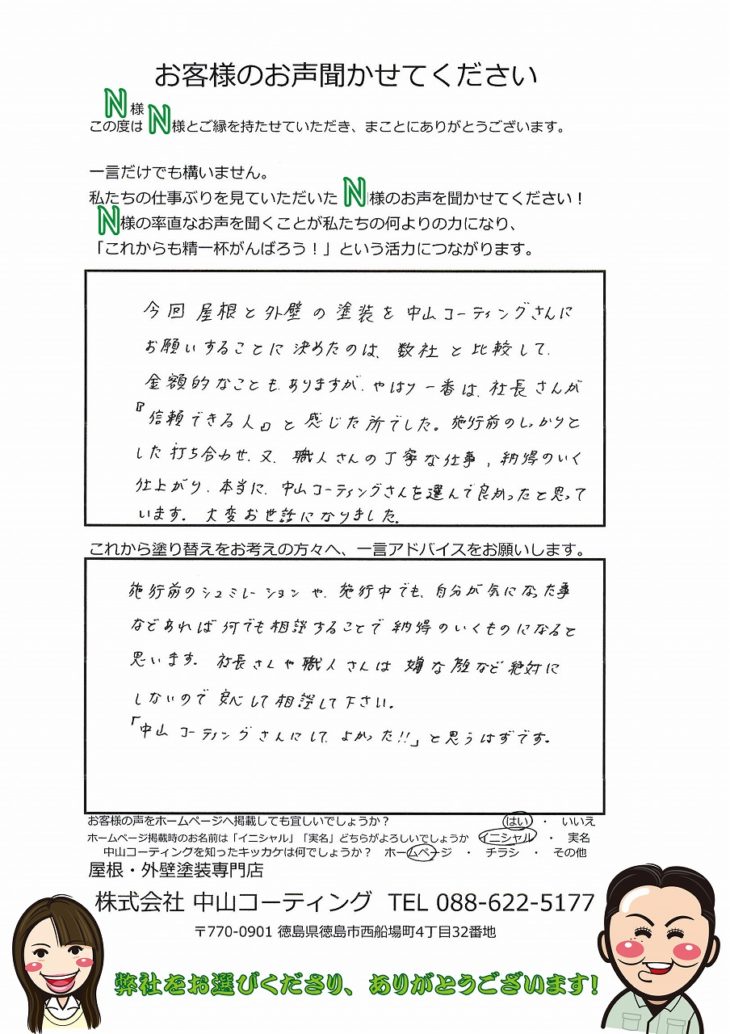 お客様のお声聞かせてください
N様
この度はN様とご縁を持たせていただき、まことにありがとうございます。
一言だけでも構いません。
私たちの仕事ぶりを見ていただいたN様のお声を聞かせてください！
N様の率直なお声を聞くことが私たちの何よりの力になり、
「これからも精一杯がんばろう！」という活力につながります。
今回屋根と外壁の塗装を中山コーティングさんに
お願いすることに決めたのは、数社と比較して、
金額的なこともありますが、やはり一番は、社長さんが
『信頼できる人』と感じた所でした。施行前のしっかりと
した打ち合わせ、又、職人さんの丁寧な仕事、納得のいく
仕上がり、本当に、中山コーティングさんを選んで良かったと思って
います。大変お世話になりました。
これから塗り替えをお考えの方々へ、一言アドバイスをお願いします。
施行前のシュミレーションや、施行中でも、自分が気になった事
などあれば何でも相談することで納得のいくものになると
思います。社長さんや職人さんは嫌な顔など絶対に
しないので安心して相談して下さい。
「中山コーティングさんにして、よかった!!」と思うはずです。
お客様の声をホームページへ掲載しても宜しいでしょうか？ はい ・ いいえ
ホームページ掲載時のお名前は「イニシャル」「実名」どちらがよろしいでしょうか イニシャル ・ 実名
中山コーティングを知ったキッカケは何でしょうか？ ホームページ ・ チラシ ・ その他
屋根・外壁塗装専門店
株式会社 中山コーティング TEL 088-622-5177
〒770-0901 徳島県徳島市西船場町4丁目32番地
弊社をお選びくださり、ありがとうございます!